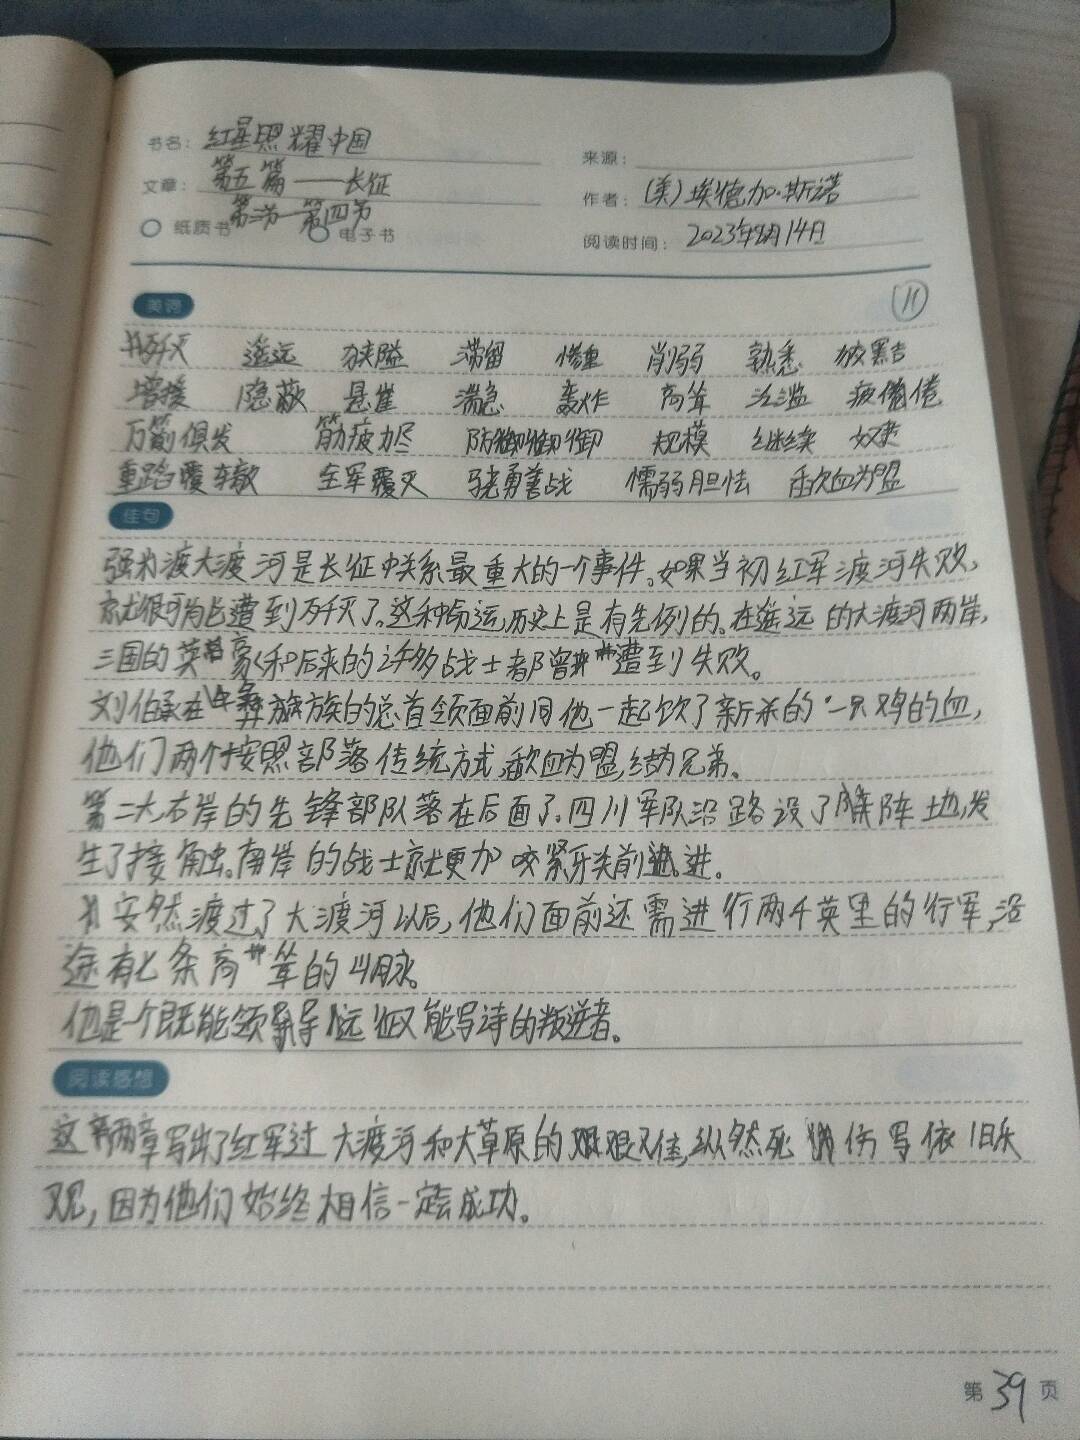 书名：红星照耀中国
来源：
文章：第五篇——长征
作者：（美）埃德加·斯诺
第三节—第四节
纸质书 电子书
阅读时间：2023年8月14日
美词
11
歼灭 遥远 狭隘 滞留 惨重 削弱 熟悉 被黑吉
增援 隐蔽 悬崖 湍急 轰炸 高耸 泛滥 疲倦
万箭俱发 筋疲力尽 防御 规模 继续 奴隶
重蹈覆辙 全军覆灭 骁勇善战 懦弱胆怯 歃血为盟
佳句
强渡大渡河是长征中关系最重大的一个事件。如果当初红军渡河失败，
就很可能遭到歼灭了。这种命运，历史上是有先例的。在遥远的大渡河两岸，
三国的英豪和后来的许多战士都曾遭到失败。
刘伯承在彝族的总首领面前同他一起饮了新杀的一只鸡的血，
他们两个按照部落传统方式，歃血为盟，结为兄弟。
第二天，右岸的先锋部队落在后面了。四川军队沿路设了阵地，发
生了接触。南岸的战士就更加咬紧牙关前进。
安然渡过了大渡河以后，他们面前还需进行两千英里的行军，沿
途有七条高耸的山脉。
他是一个既能领导远征又能写诗的叛逆者。
阅读感想
这两章写出了红军过大渡河和大草原的艰难，纵然死伤 依旧乐
观，因为他们始终相信一定会成功。
第39页